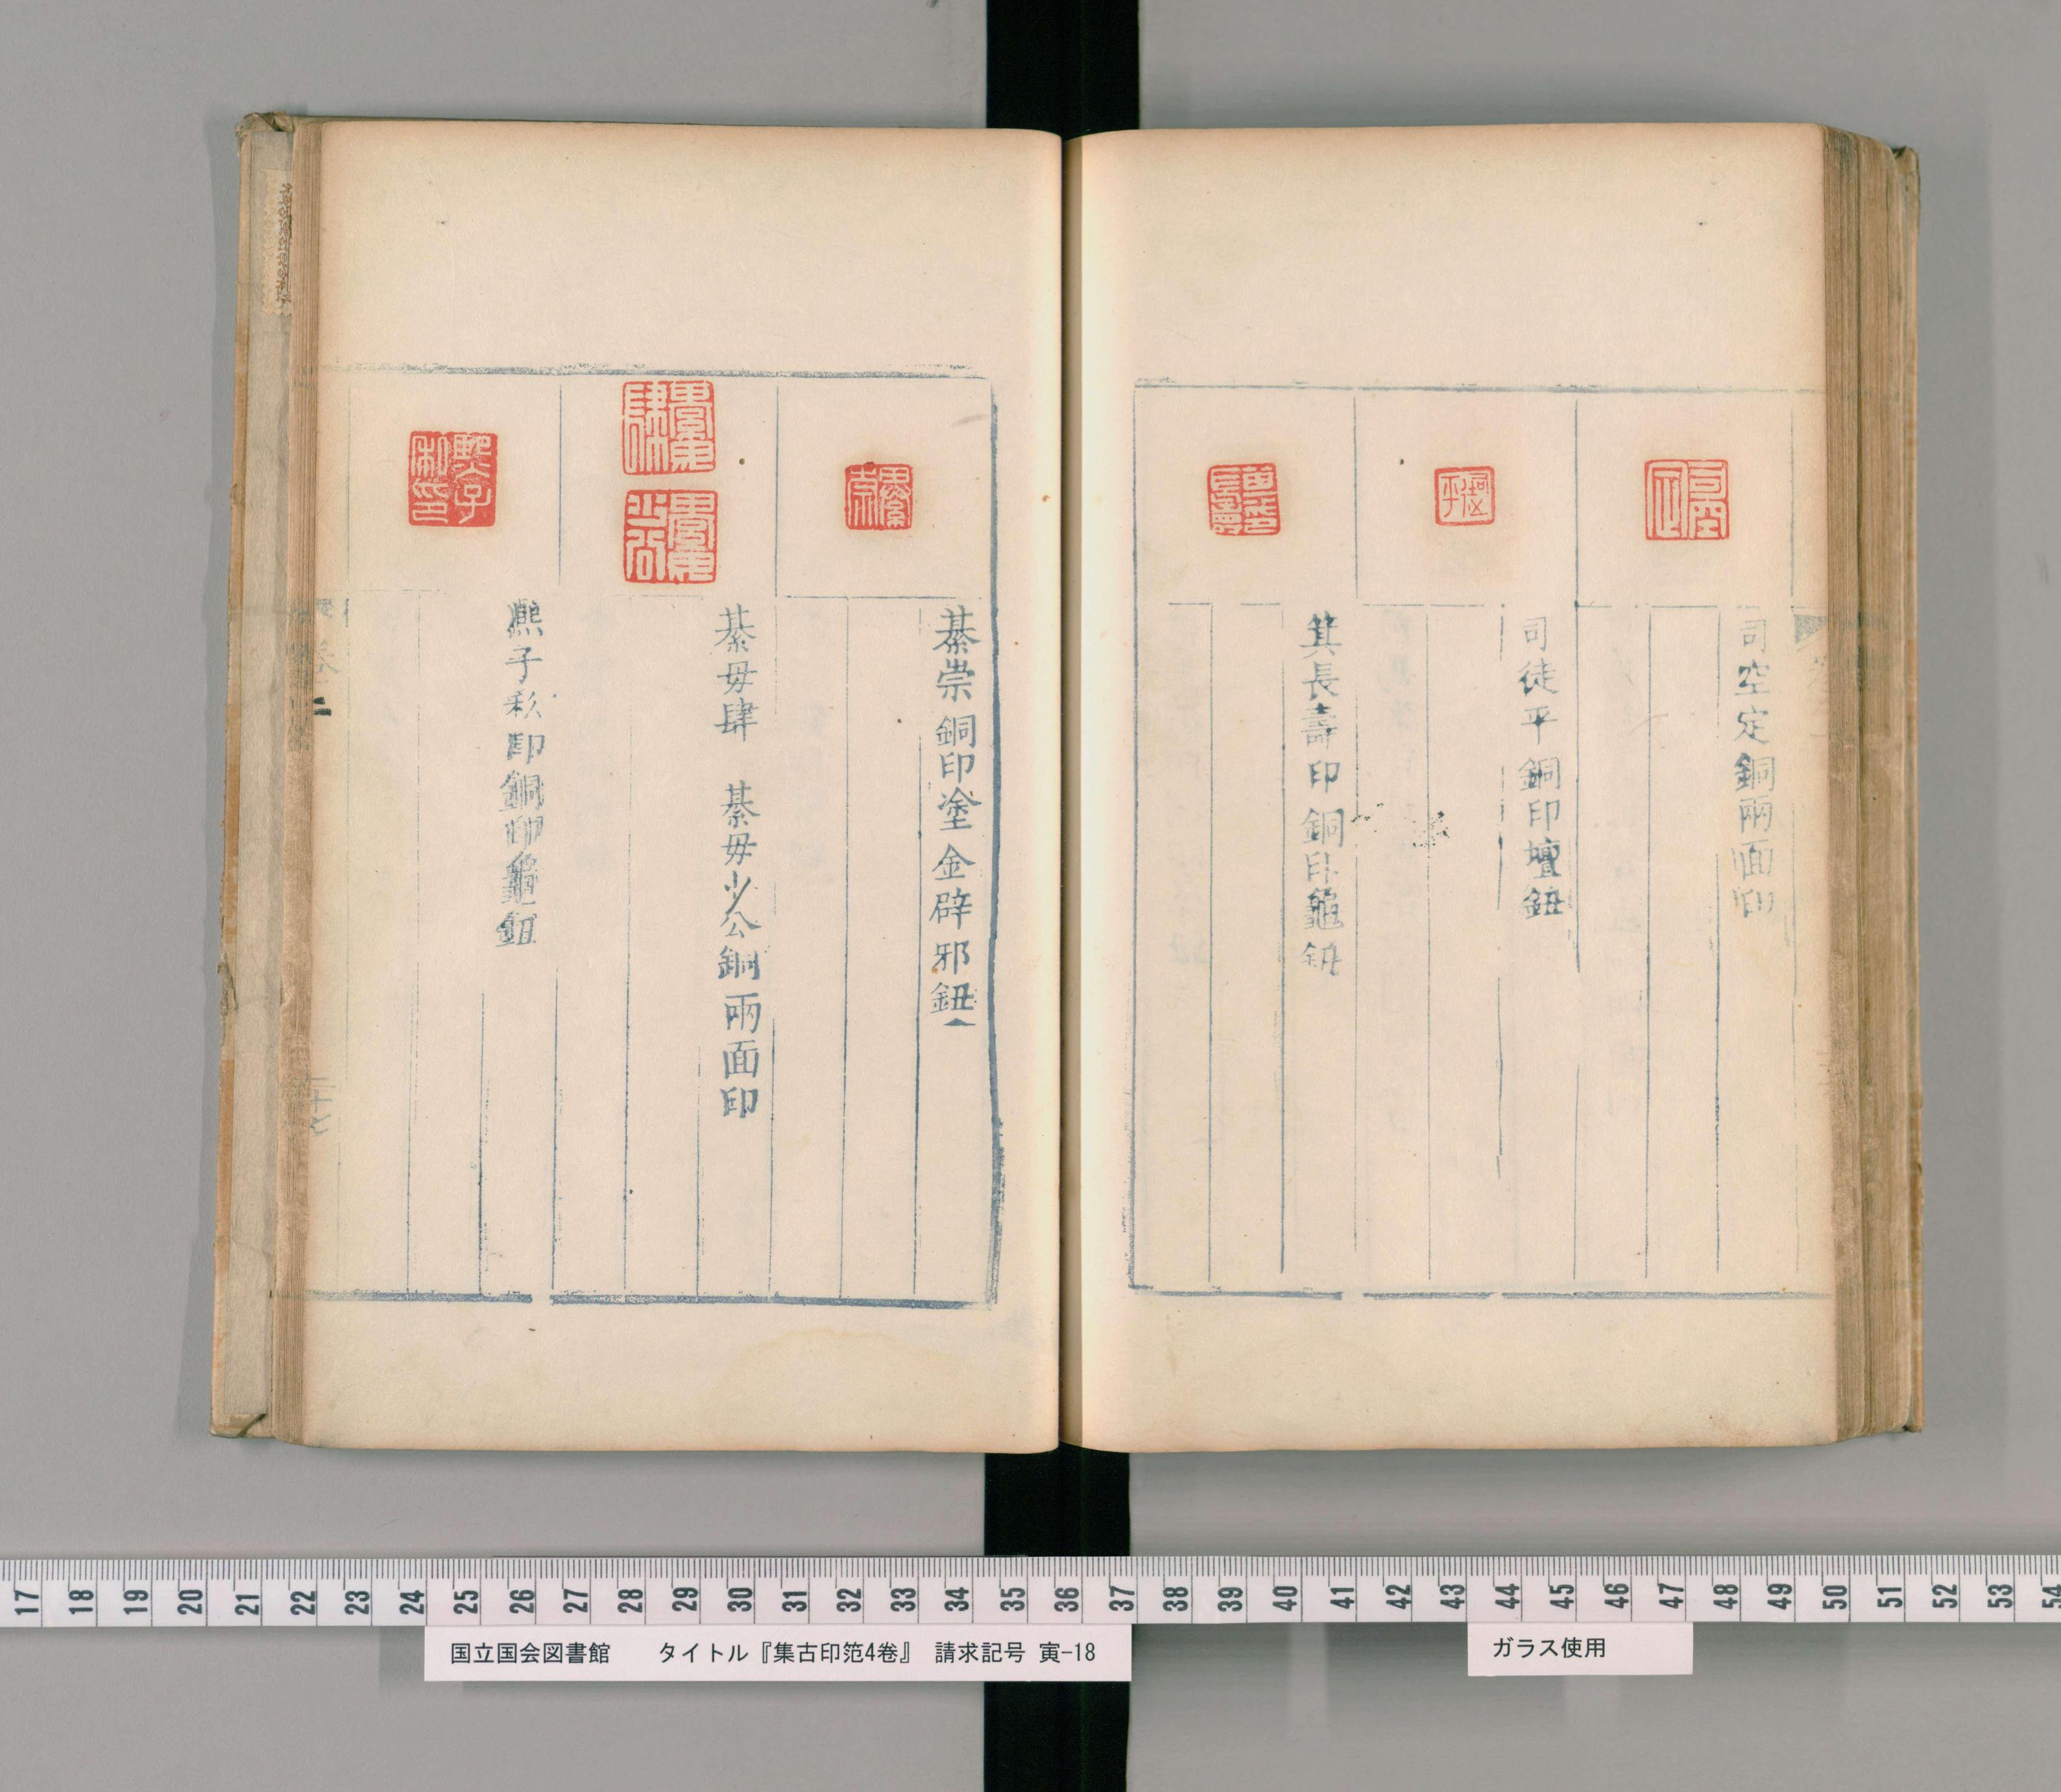 司空定銅兩面印
司徒平銅印壇鈕
箕長壽印銅印龜鈕
綦崇銅印塗金辟邪鈕
綦毋肆　綦毋少公銅兩面印
熈子秋印銅印龜鈕
卷二
二十七
司空定
綦崇
綦毋肆
17 18 19 20 21 22 23 24 25 26 27 28 29 30 31 32 33 34 35 36 37 38 39 40 41 42 43 44 45 46 47 48 49 50 51 52 53 54
国立国会図書館　　タイトル『集古印笵4巻』　請求記号　寅-18
ガラス使用